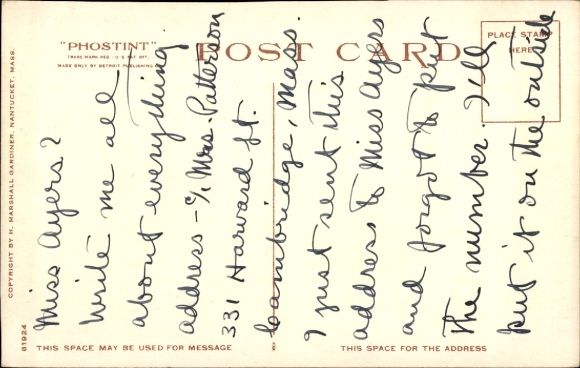 "PHOSTINT"
TRADE MARK REG. U.S. PAT. OFF.
MADE ONLY BY DETROIT PUBLISHING
POST CARD
PLACE STAMP
HERE
COPYRIGHT BY H. MARSHALL GARDINER, NANTUCKET, MASS.
81924
THIS SPACE MAY BE USED FOR MESSAGE
THIS SPACE FOR THE ADDRESS
Miss Ayers?
Write me all
about everything
address - c/o Mrs. Patterson
331 Harvard St.
Cambridge, Mass.
I just sent this
address to Miss Ayers
and forgot to put
the number. I'll
put it on the outside